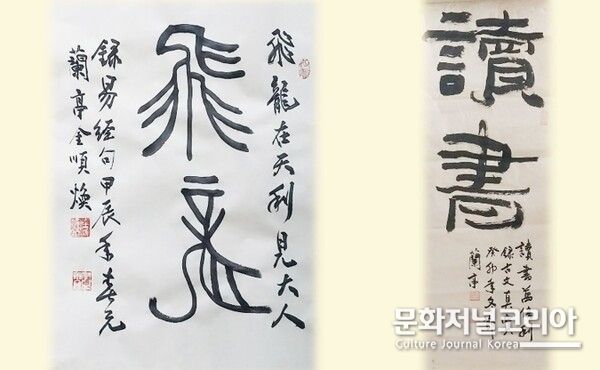 飛龍在天利見大人
飛龍
錄易經句甲辰年春元
蘭亭金順煥
讀書
讀書萬倍利
錄古文真寶
癸卯年冬
蘭亭
문화저널코리아
Culture Journal Korea